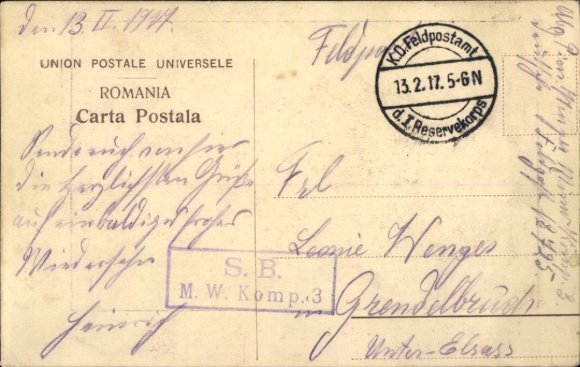 den 13. II. 1917.
Feldpost
UNION POSTALE UNIVERSELE
ROMANIA
Carta Postala
K.D.Feldpostamt
13.2.17. 5-6 N
d. I. Reservekorps
Sende euch von hier
die herzlichsten Grüße
auf ein baldiges frohes
Wiedersehn
Heinrich
S. B.
M. W. Komp. 3
Frl
Leonie Wenger
in Grendelbruch
Unter-Elsass